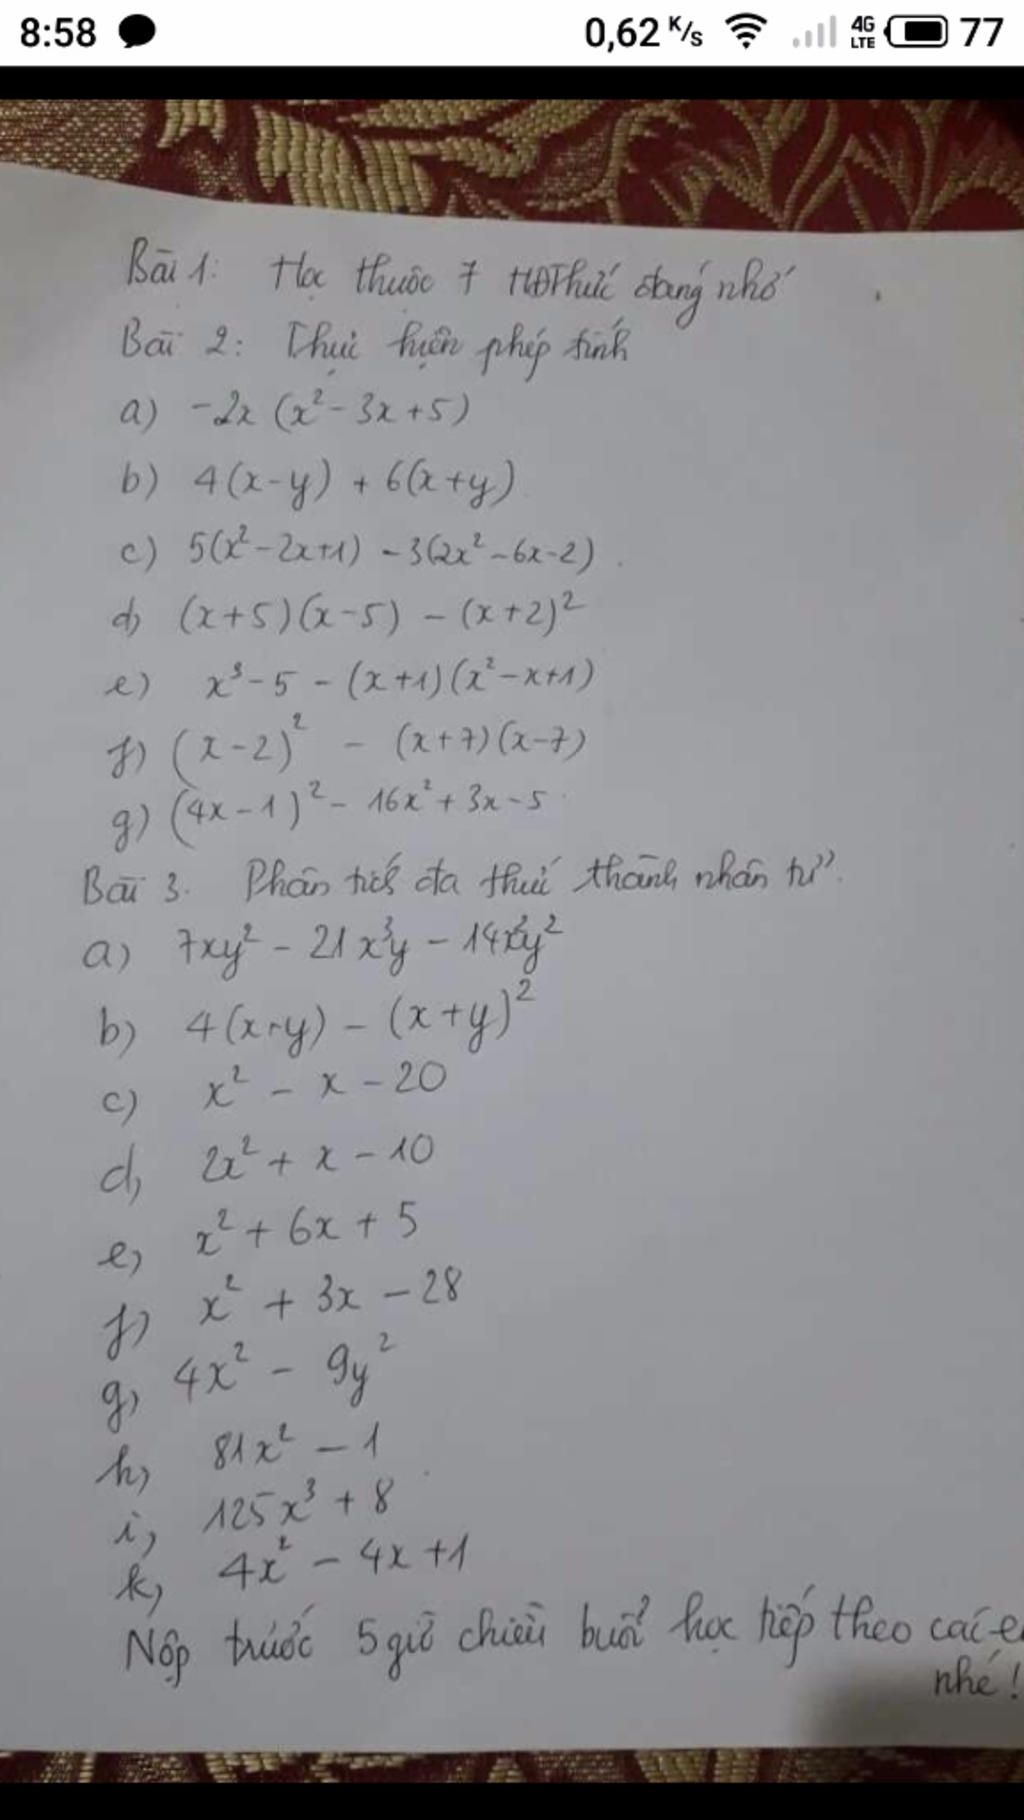 8:58 0,62 K/s 4G LTE 77
Bài 1: Học thuộc 7 HĐThức đáng nhớ
Bài 2: Thực hiện phép tính
a) -2x (x² - 3x + 5)
b) 4(x-y) + 6(x+y)
c) 5(x² - 2x+1) - 3(2x² - 6x - 2)
d) (x+5)(x-5) - (x+2)²
e) x³ - 5 - (x+1)(x² - x+1)
f) (x-2)² - (x+7)(x-7)
g) (4x - 1)² - 16x² + 3x - 5
Bài 3. Phân tích đa thức thành nhân tử.
a) 7xy² - 21x³y - 14x²y²
b) 4(x+y) - (x+y)²
c) x² - x - 20
d, 2x² + x - 10
e, x² + 6x + 5
f) x² + 3x - 28
g, 4x² - 9y²
h, 81x² - 1
i, 125x³ + 8
k, 4x² - 4x +1
Nộp trước 5 giờ chiều buổi học tiếp theo các e
nhé!